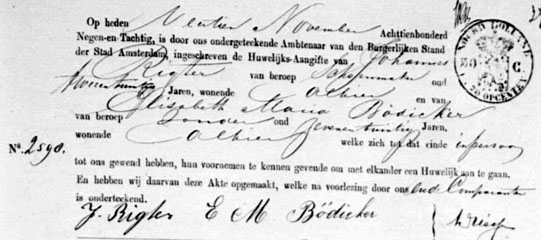 Op heden Veertien November Achttienhonderd
Negen-en-Tachtig, is door ons ondergeteekende Ambtenaar van den Burgerlijken Stand
der Stad Amsterdam, ingeschreven de Huwelijks-Aangifte van Johannes
Rigter van beroep Schoenmaker oud
Jaren, wonende Alhier en van
Elisabeth Maria Bödicker
van beroep Zonder oud zevenentwintig Jaren,
wonende Alhier welke zich tot dat einde in persoon
No. 2598.
tot ons gewend hebben, hun voornemen te kennen gevende om met elkander een Huwelijk aan te gaan.
En hebben wij daarvan deze Akte opgemaakt, welke na voorlezing door ons en de Comparanten
is onderteekend.
J. Rigter E M Bödicker
NOORD HOLLAND
50 C
70 OPCENTEN